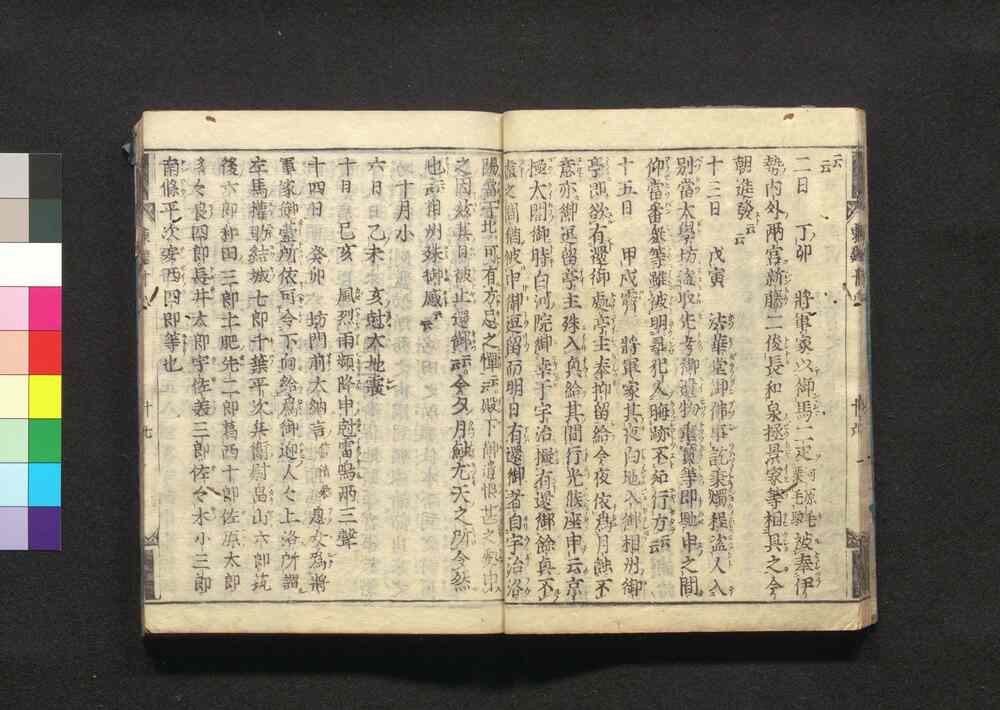 云
二日 丁卯 將軍家以御馬二疋河原毛裴毛駮被奉伊
勢内外兩宮新藤二俊長和泉掾景家等相具之今
朝進發云云
十三日 戊寅 法華堂御佛事訖乘燭程盗人入
別當大學坊盗取先考御遺物重寳等即馳申之間
仰當番衆等雖被明尋犯人晦跡不知行方云云
十五日 甲戌霽 將軍家其夜向地入御相州御
亭即欲有還御處亭主奉抑留給今夜依爲月蝕不
意亦御逗留亭主殊入興給其間行光候座申云京
極大閤御時白河院御幸于宇治擬有還御餘興不
盡之間猶被申御逗留而明日有還御者自宇治洛
陽當于北可有方忌之憚云云殿下御遺恨甚之處申
之因茲其日被止還御云云今夕月蝕尤天之所令然
也云云相州殊御感云云
十月小
六日 乙未 亥尅大地震
十日 己亥 風烈雨頻降申尅雷鳴兩三聲
十四日 癸卯 坊門前大納言信淸卿息女爲將
軍家御臺所依可令下向給爲御迎人々上洛所謂
左馬權助結城七郎千葉平次兵衞尉畠山六郎筑
後六郎和田三郎土肥先二郎葛西十郎佐原太郎
多々良四郎長井太郎宇佐美三郎佐々木小三郎
南條平次安西四郎等也
十七